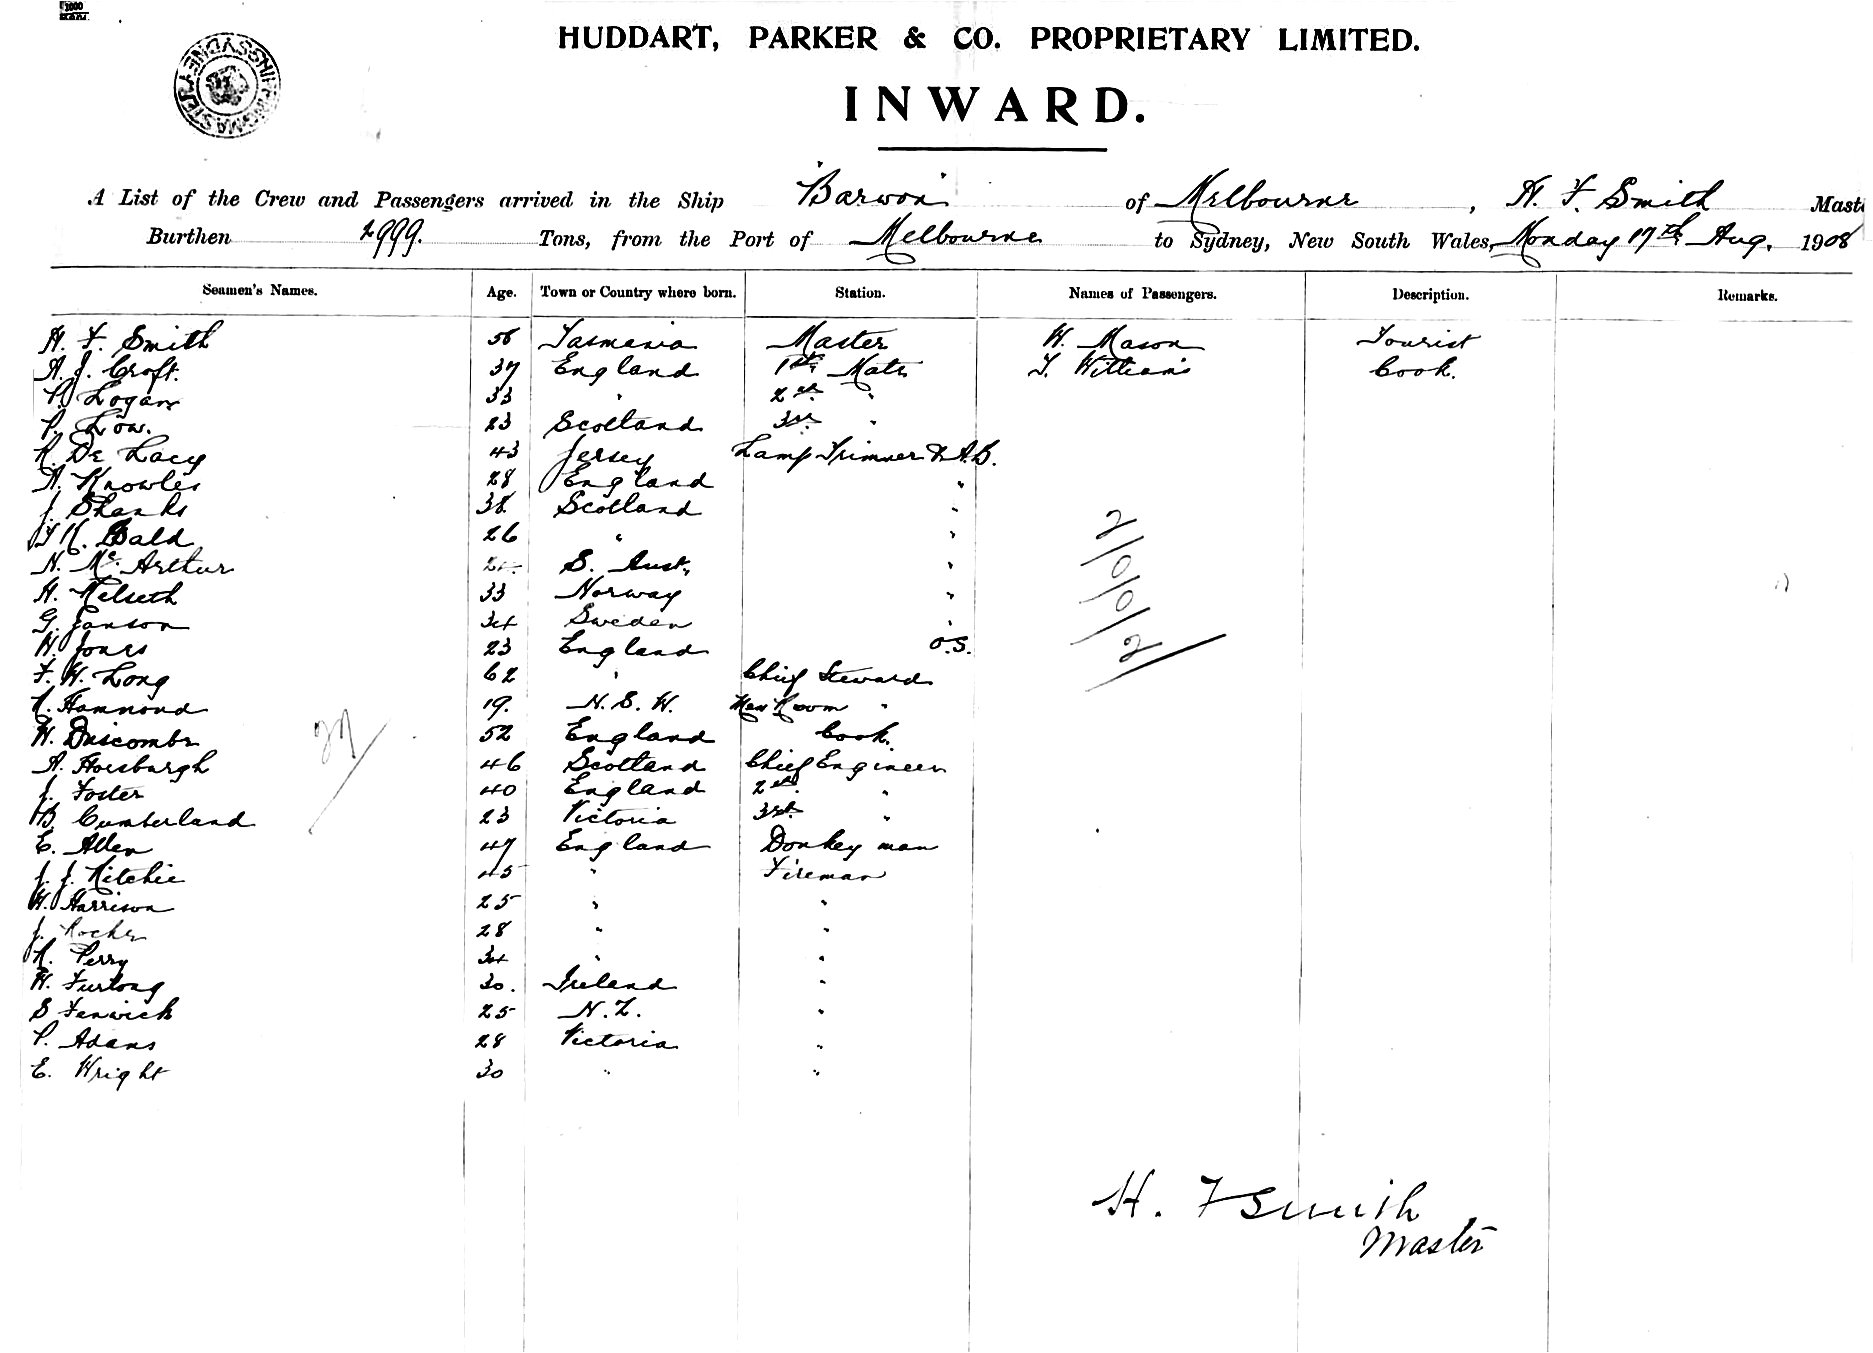 HUDDART, PARKER & CO. PROPRIETARY LIMITED.
INWARD.
A List of the Crew and Passengers arrived in the Ship "Barwon" of Melbourne, H. F. Smith Maste
Burthen 2999. Tons, from the Port of Melbourne to Sydney, New South Wales, Monday 17th Aug. 1908
Seamen's Names. Age. Town or Country where born. Station. Names of Passengers. Description. Remarks.
H. F. Smith 56 Tasmania Master W. Mason Tourist
A. J. Croft. 37 England 1st Mate T. Williams Cook.
P. Logan 33 " 2nd "
P. Low. 23 Scotland 3rd "
R. De Lacy 43 Jersey Lamp Trimmer & A.B.
A. Knowles 28 England "
J. Shanks 38 Scotland "
Bald 26 " "
N. McArthur S. Aust. "
H. Melseth 33 Norway "
G. Janson 34 Sweden "
W. Jones 23 England O.S.
F. W. Long 62 " Chief Steward
R. Hammond 19. N. S. W. Mess Room "
W. Duscombe 52 England Cook.
A. Horsburgh 46 Scotland Chief Engineer
J. Foster 40 England 2nd "
B. Cumberland 23 Victoria 3rd "
E. Allen 47 England Donkey man
J. J. Ritchie 45 " Fireman
W. Harrison 25 " "
J. Roche 28 " "
R. Perry 34 " "
W. Furlong 30. Ireland "
S Fenwick 25 N.Z. "
P. Adams 28 Victoria "
E. Wright 30 " "
27/
2/0/0/2/
H. F Smith
Master